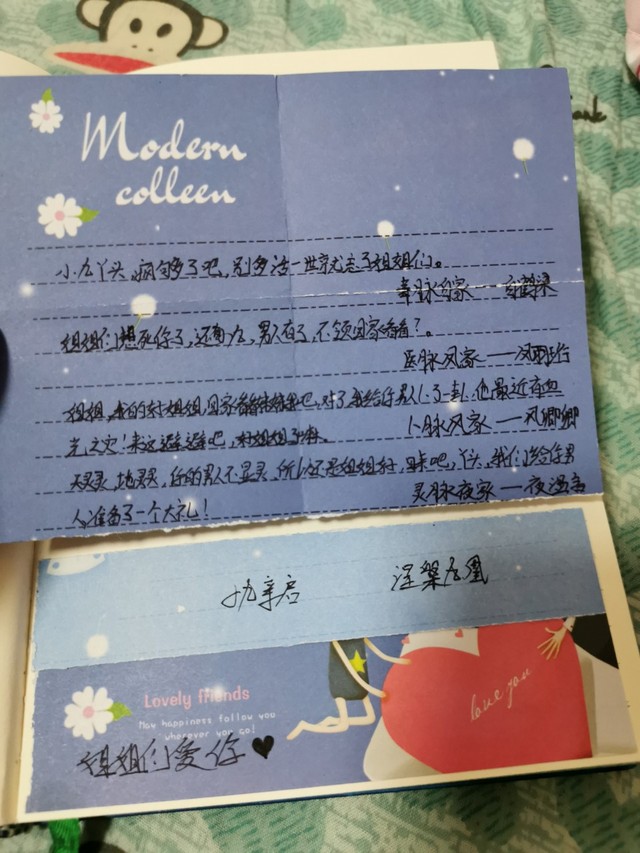 Modern
colleen
小九丫头,疯够了吧,别多活一世就忘了姐姐们。
姐姐们想死你了,还有,九,男人有了,不领回家看看?。
医脉风家——风
姐姐,我的好姐姐,回家看看妹妹吧,对了我给你男人卜了一卦,他最近有血
光之灾!来这避避吧,好姐姐
卜脉风家——风卿卿
天灵灵,地灵灵,你的男人不显灵,所以还是姐姐好,回来吧,丫头,我们给你男
人准备了一个大礼!
灵脉夜家——夜温
九亲启
涅槃九凰
Lovely friends
May happiness follow you
wherever you go!
love you
姐姐们爱你♥